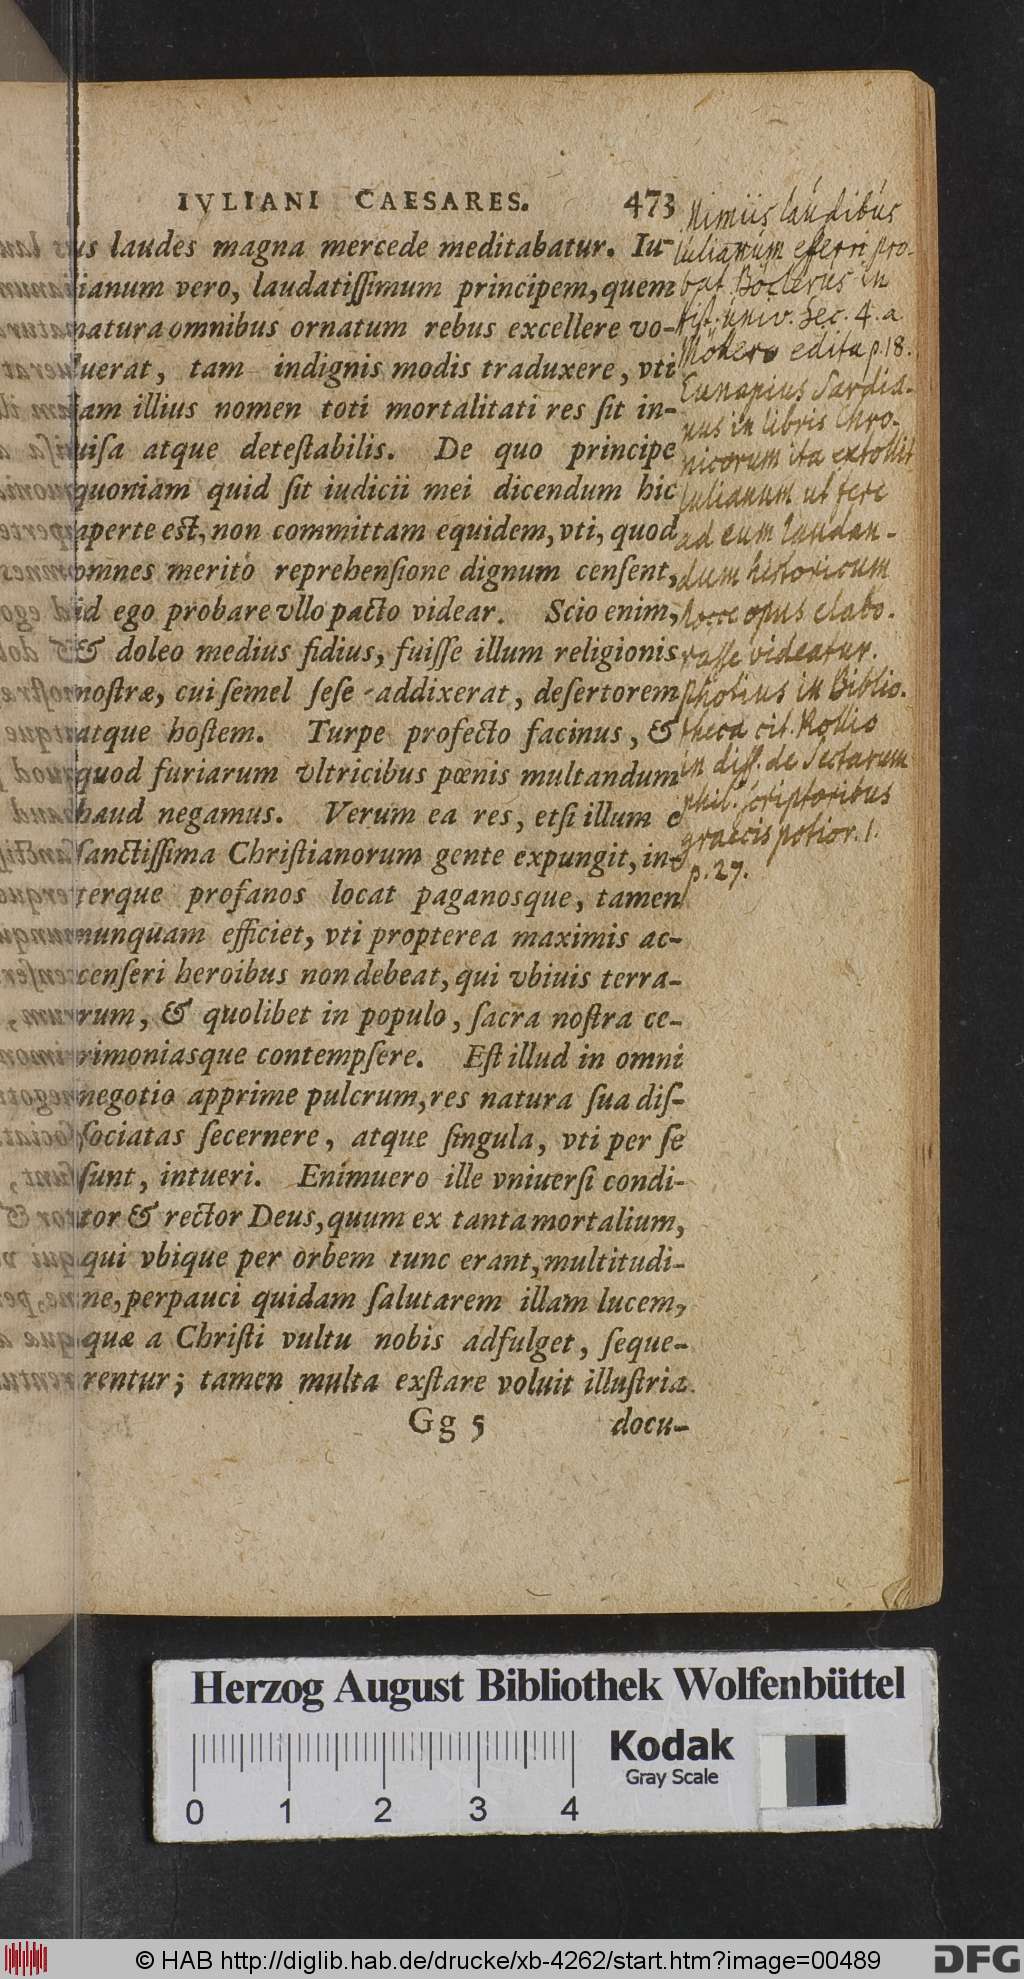 IVLIANI CAESARES. 473
us laudes magna mercede meditabatur. Iu-
lianum vero, laudatiſſimum principem, quem
natura omnibus ornatum rebus excellere vo-
luerat, tam indignis modis traduxere, vti
iam illius nomen toti mortalitati res ſit in-
uiſa atque deteſtabilis. De quo principe
quoniam quid ſit iudicii mei dicendum hic
aperte eſt, non committam equidem, vti, quod
omnes meritò reprehenſione dignum cenſent,
id ego probare vllo pacto videar. Scio enim,
& doleo medius fidius, fuiſſe illum religionis
noſtræ, cui ſemel ſeſe addixerat, deſertorem
atque hoſtem. Turpe profecto facinus, &
quod furiarum vltricibus pœnis multandum
haud negamus. Verum ea res, etſi illum e
ſanctiſſima Chriſtianorum gente expungit, in-
terque profanos locat paganosque, tamen
nunquam efficiet, vti propterea maximis ac-
cenſeri heroibus non debeat, qui vbiuis terra-
rum, & quolibet in populo, ſacra noſtra ce-
rimoniasque contempſere. Eſt illud in omni
negotio apprime pulcrum, res natura ſua diſ-
ſociatas ſecernere, atque ſingula, vti per ſe
ſunt, intueri. Enimuero ille vniuerſi condi-
tor & rector Deus, quum ex tanta mortalium,
qui vbique per orbem tunc erant, multitudi-
ne, perpauci quidam ſalutarem illam lucem,
quæ a Chriſti vultu nobis adfulget, ſeque-
rentur; tamen multa exſtare voluit illuſtria
Gg 5 docu-
Nimiis laudibus
Iulianum efferri pro-
bat Boclerus in
hist. univ. Sec. 4. a
Mollero edita p. 18.
Eunapius Sardia-
nus in libris Chro-
nicorum ita extollit
Iulianum ut fere
ad eum laudan-
dum historicum
hocce opus elabo-
rasse videatur.
Photius in Biblio-
theca cit.
in diss. de Sectarum
phil. scriptoribus
graecis potior. 1.
p. 27.
Herzog August Bibliothek Wolfenbüttel
Kodak
Gray Scale
0 1 2 3 4
© HAB http://diglib.hab.de/drucke/xb-4262/start.htm?image=00489
DFG